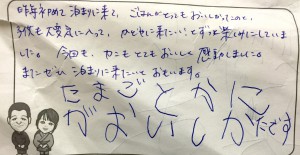 昨年初めて泊まりに来て、ごはんがとってもおいしかったので、
気に入って、 に来たい!とずっと楽しみにしていま
した。今回も、カニもとてもおいしく感動しました。
また ぜひ 泊まりに来たいとおもいます。
たまごとかに
がおいしかたです